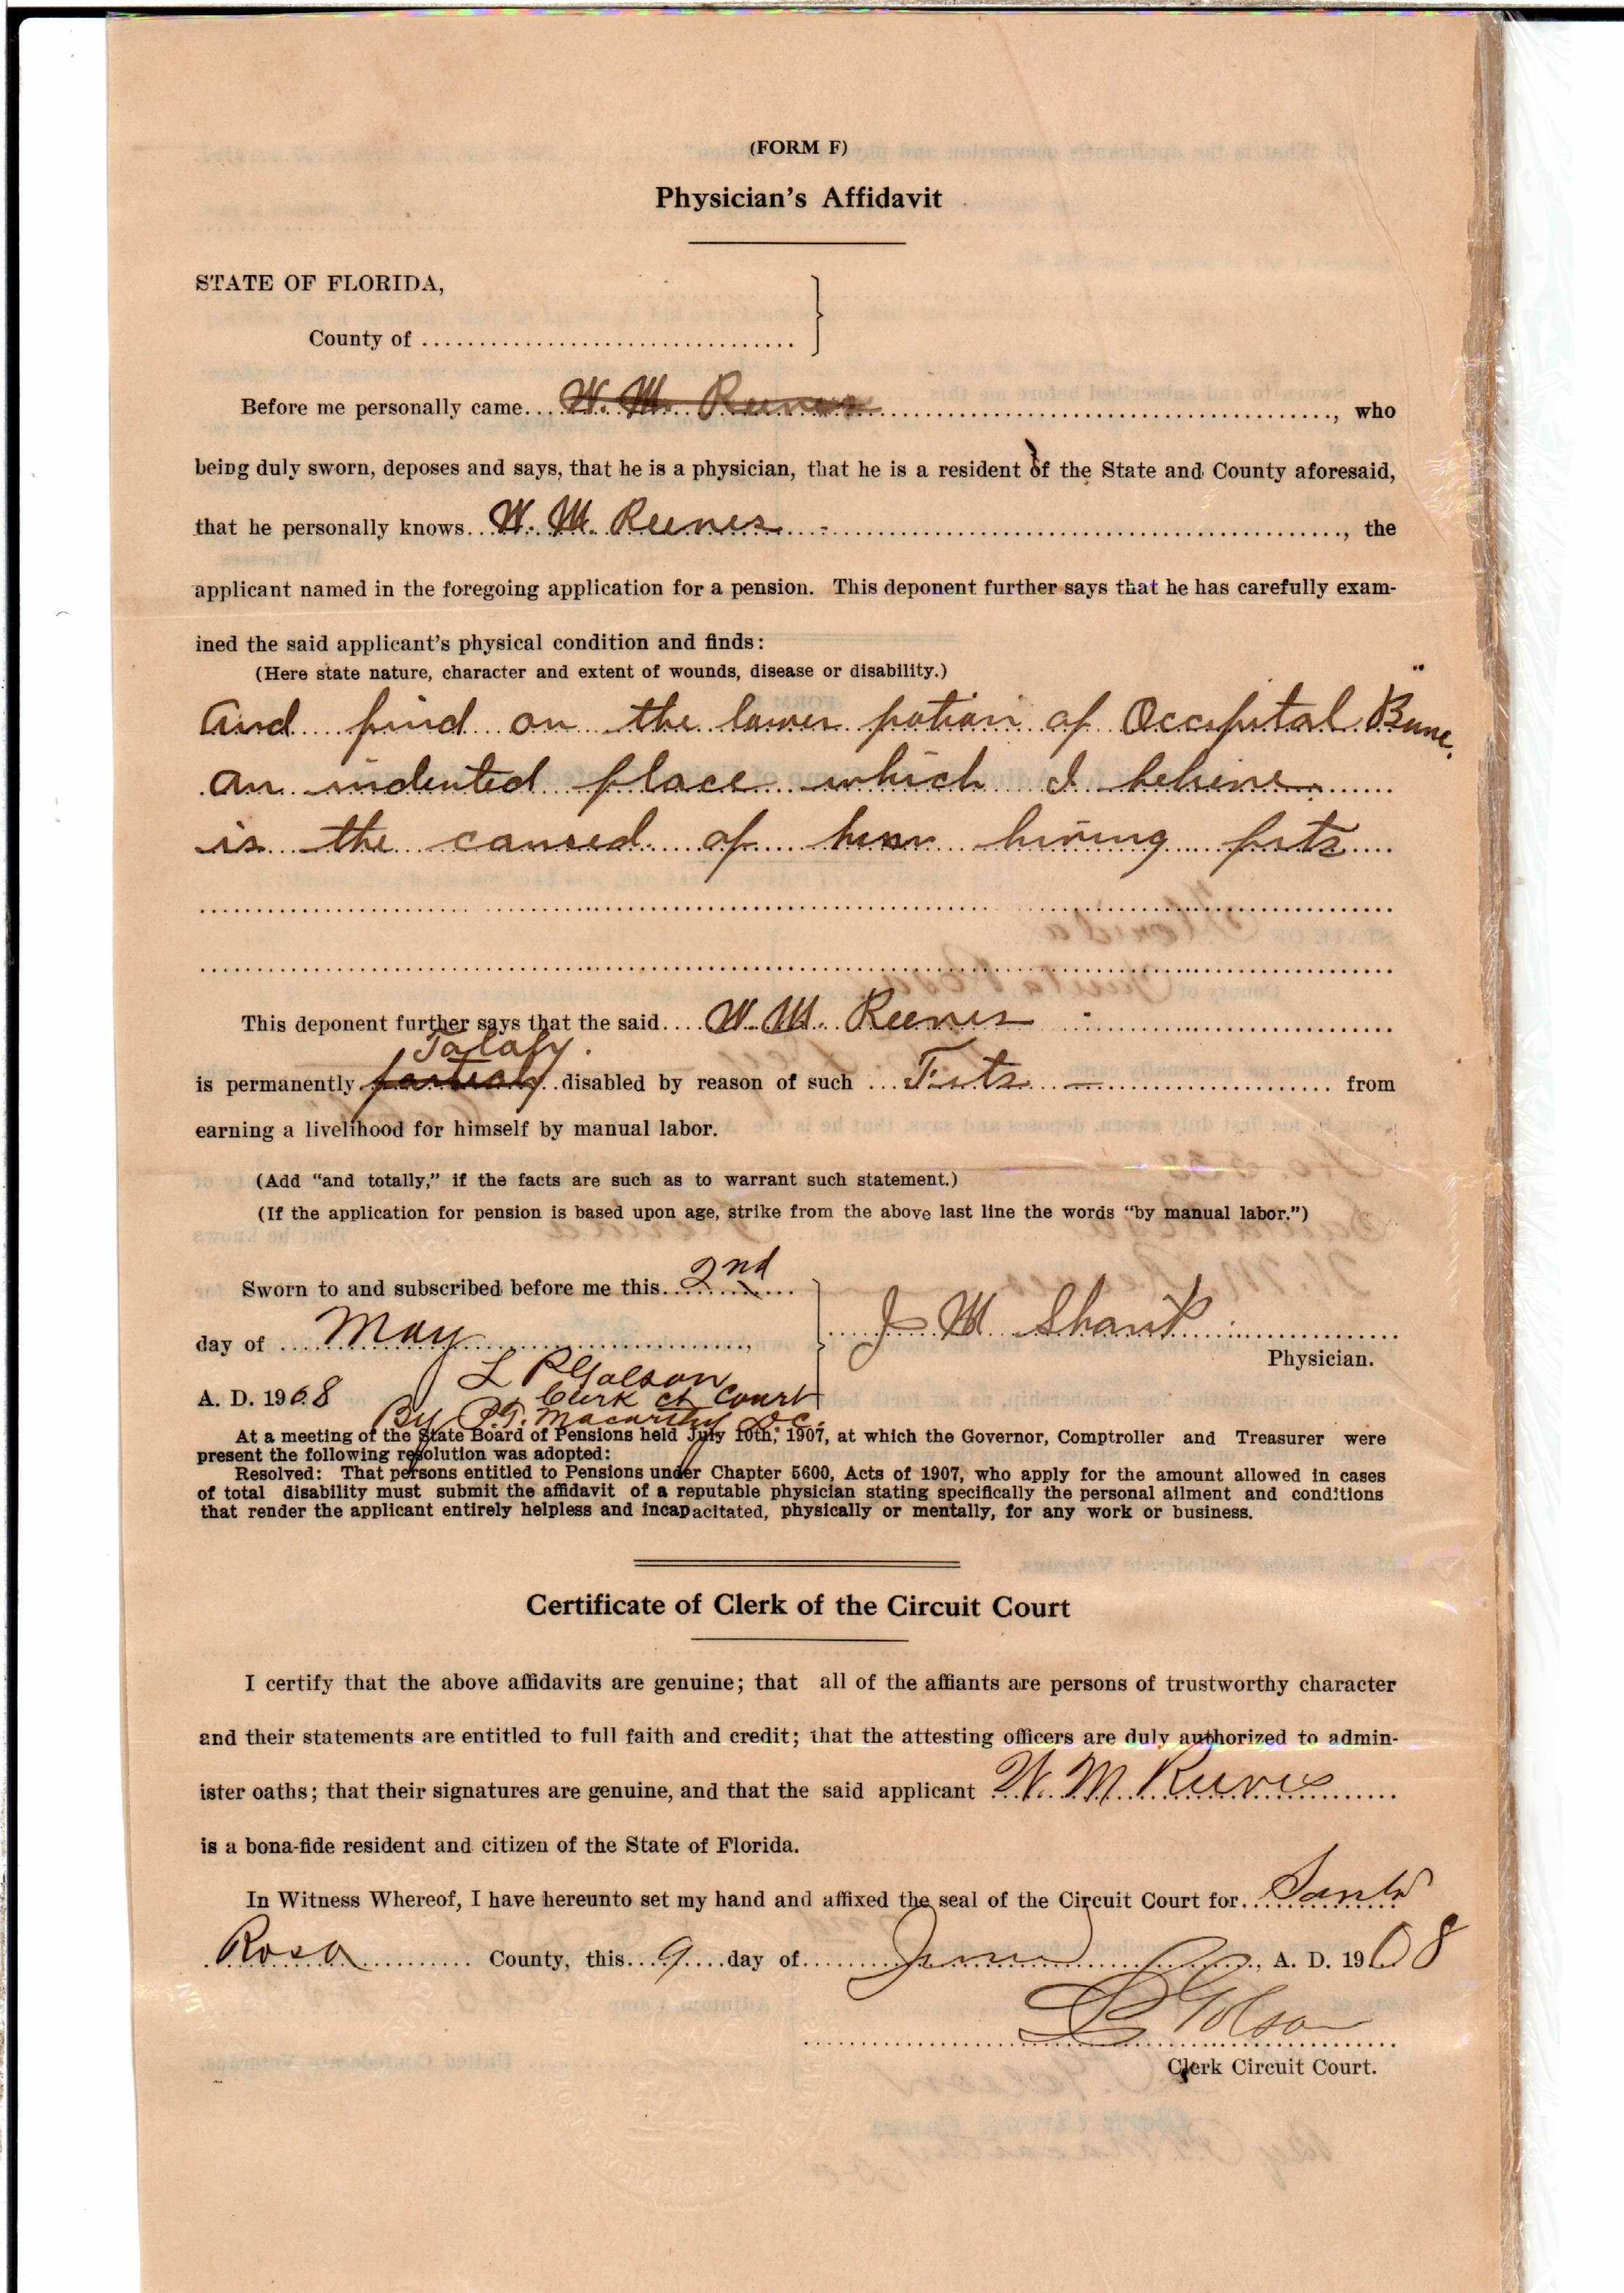 (FORM F)
Physician's Affidavit
STATE OF FLORIDA,
County of
Before me personally came W. M. Reeves, who
being duly sworn, deposes and says, that he is a physician, that he is a resident of the State and County aforesaid,
that he personally knows W. M. Reeves, the
applicant named in the foregoing application for a pension. This deponent further says that he has carefully exam-
ined the said applicant's physical condition and finds:
(Here state nature, character and extent of wounds, disease or disability.)
And find on the lower potion of Occipital Bone.
an indented place which I believe
is the caused of him hiving fits
This deponent further says that the said W. M. Reeves
Totaly
is permanently partialy disabled by reason of such Fits from
earning a livelihood for himself by manual labor.
(Add "and totally," if the facts are such as to warrant such statement.)
(If the application for pension is based upon age, strike from the above last line the words "by manual labor.")
Sworn to and subscribed before me this 2nd
day of May,
J M Shank
Physician.
L P Golson
A. D. 1908 Clerk ct Court
By P. T. Macarthy D.C.
At a meeting of the State Board of Pensions held July 10th, 1907, at which the Governor, Comptroller and Treasurer were
present the following resolution was adopted:
Resolved: That persons entitled to Pensions under Chapter 5600, Acts of 1907, who apply for the amount allowed in cases
of total disability must submit the affidavit of a reputable physician stating specifically the personal ailment and conditions
that render the applicant entirely helpless and incapacitated, physically or mentally, for any work or business.
Certificate of Clerk of the Circuit Court
I certify that the above affidavits are genuine; that all of the affiants are persons of trustworthy character
and their statements are entitled to full faith and credit; that the attesting officers are duly authorized to admin-
ister oaths; that their signatures are genuine, and that the said applicant W. M. Reeves
is a bona-fide resident and citizen of the State of Florida.
In Witness Whereof, I have hereunto set my hand and affixed the seal of the Circuit Court for Santa
Rosa County, this 9 day of June, A. D. 1908
L P Golson
Clerk Circuit Court.